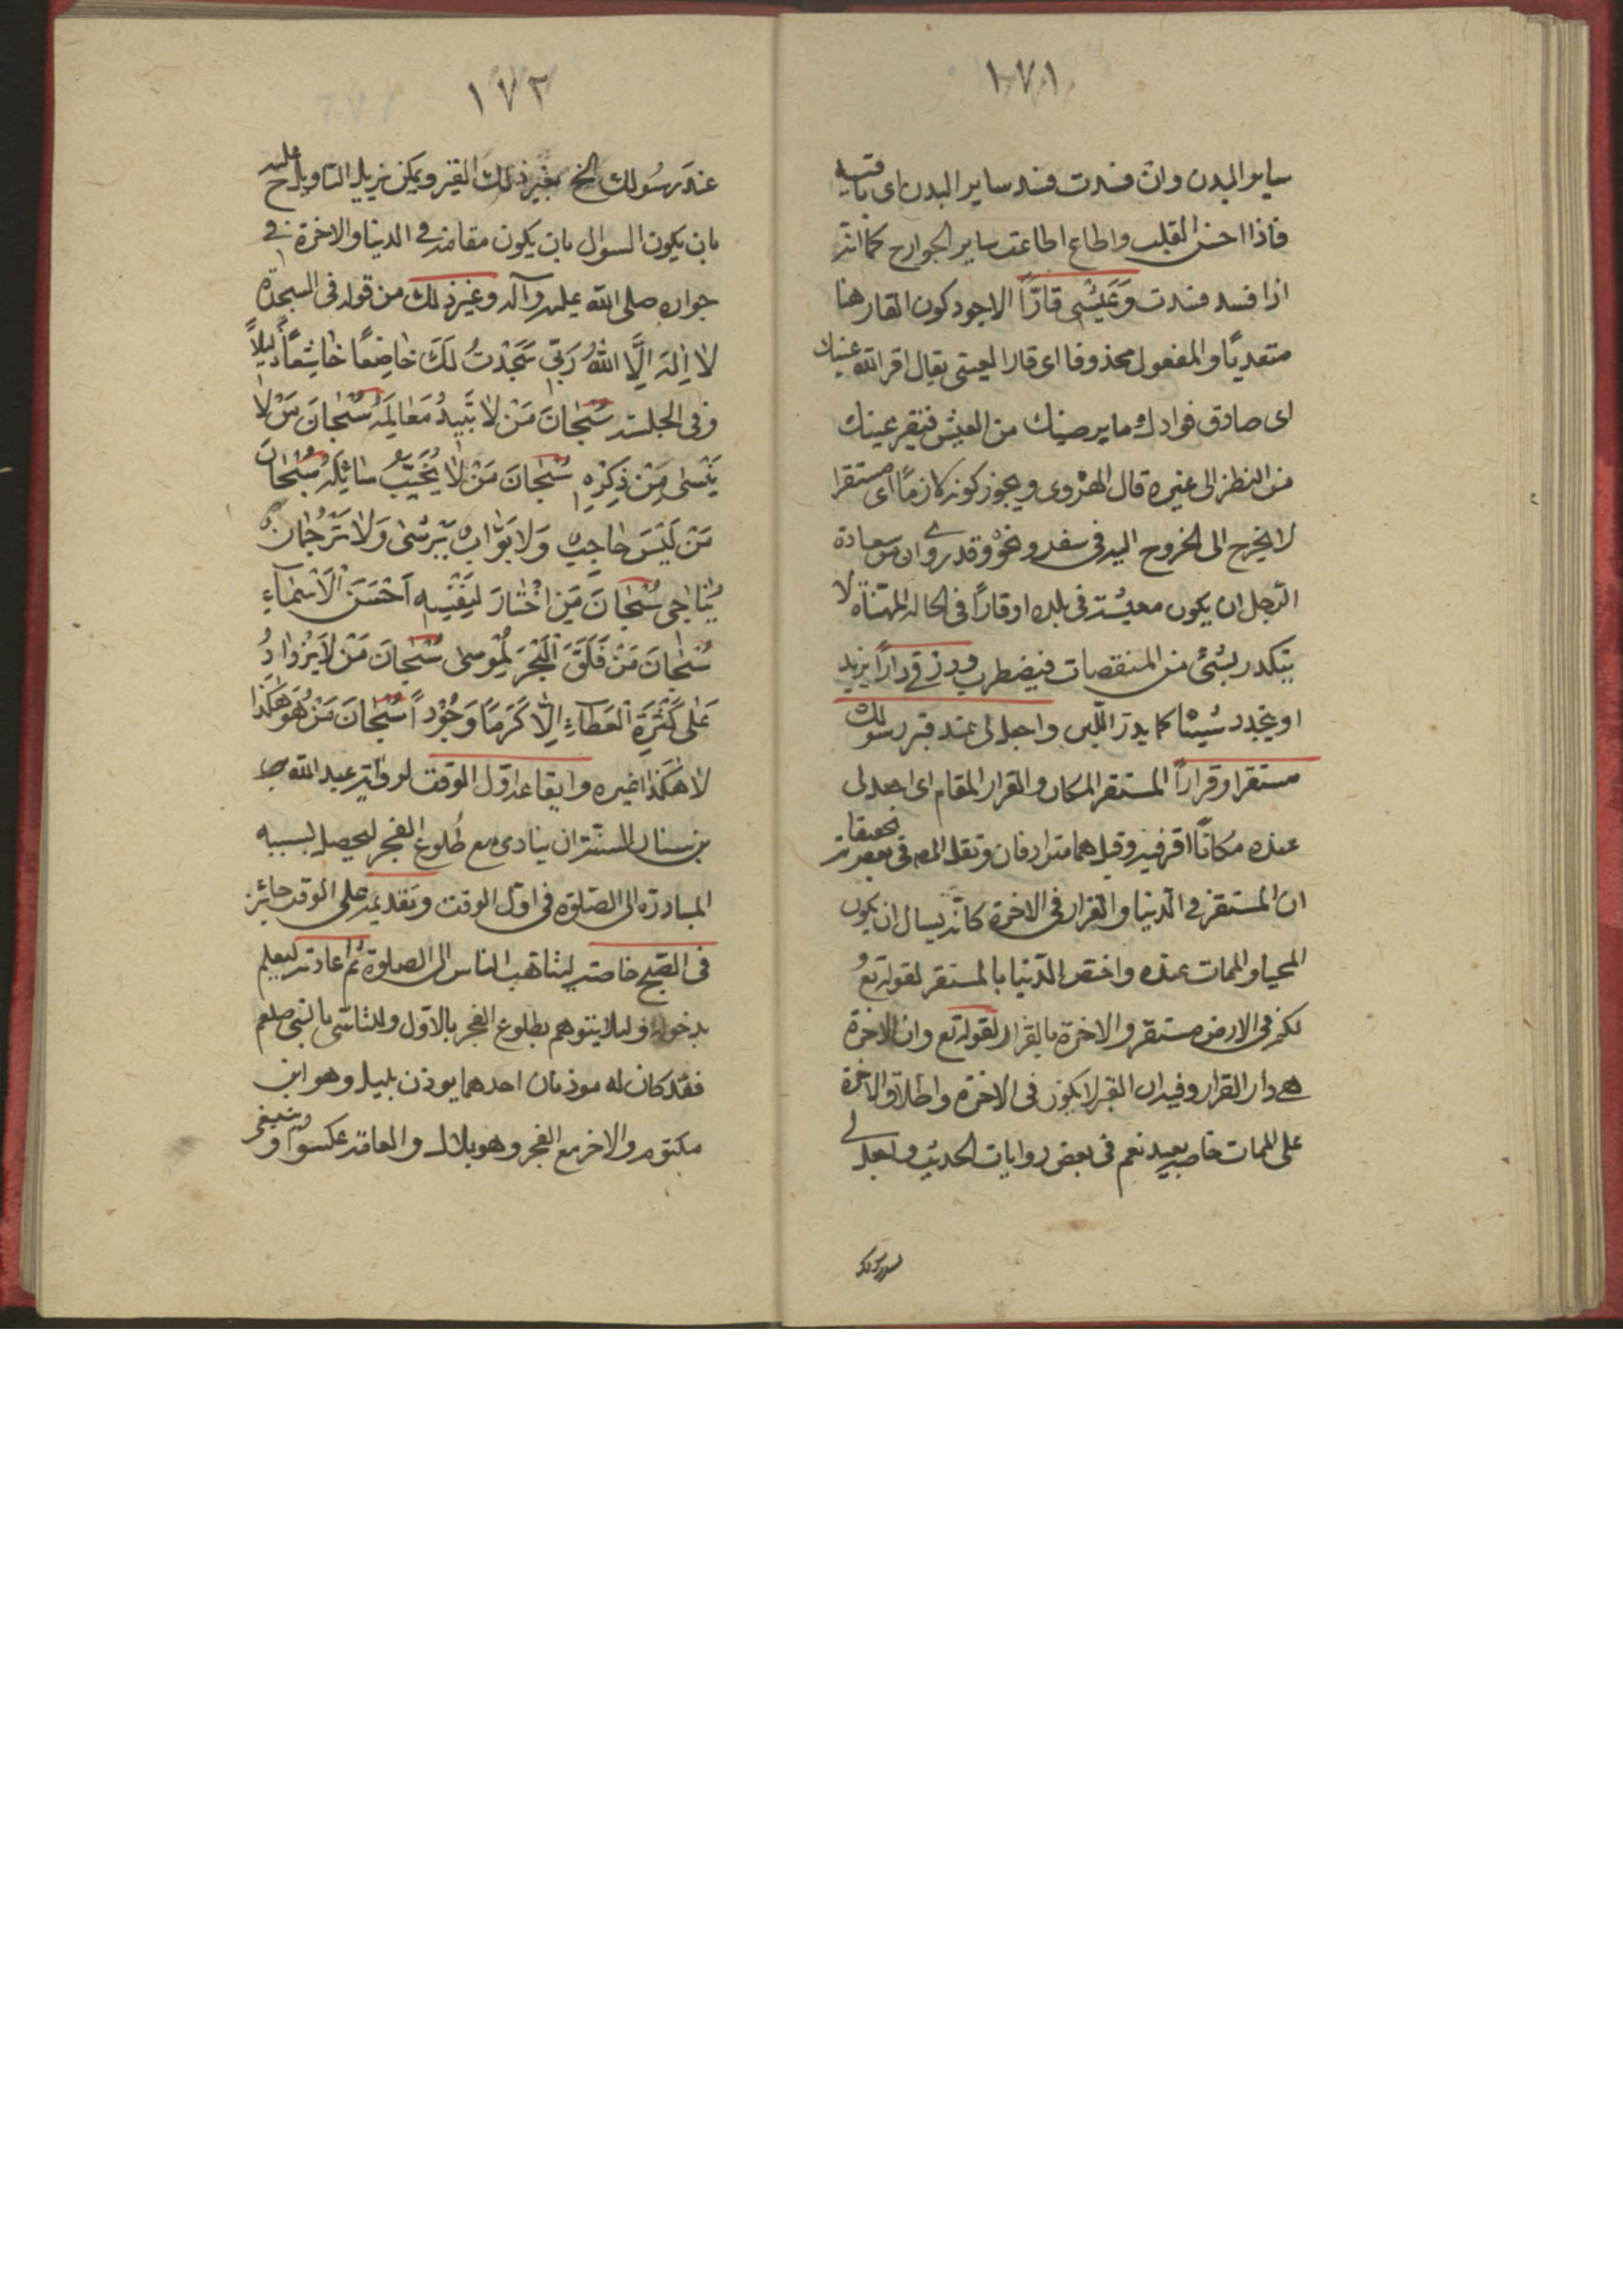 ١٧١
ساير البدن وان فسدت فسد ساير البدن اى باقيه
فاذا احسن القلب واطاع اطاعت ساير الجوارح كما انه
اذا فسد فسدت وَعَيْشى قارّاً الاجود كون القار هنا
متعديًا والمفعول محذوفا اى قارا لعينى يقال اقر الله عينك
اى صادق فوادك ما يرضيك من العيش فتقر عينك
من النظر الى غيره قال الهروى ويجوز كونه لازماً اى مستقرا
لا يخرج الى الخروج اليه فى سفر ونحوه وقد روى ان من سعادة
الرجل ان يكون معيشته فى بلده او قارًا فى الحالة المهنأة لا
يتكدر بشئ من المنغصات فيضطرب ورزقى دارًا يزيد
او يتجدد شيئا كما يدرّ اللبن واجعل لى عند قبر رسولك
مستقرا وقراراً المستقر المكان والقرار المقام اى اجعل لى
عنده مكانًا اقر فيه وقيل هما مترادفان ونقل المص فى بعض تحقيقاته
ان المستقر فى الدنيا والقرار فى الاخرة كانّه يسال ان يكون
المحيا والممات عنده واختص الدنيا بالمستقر لقوله تع و
لكم فى الارض مستقر والاخرة بالقرار لقوله تع وان الاخرة
هى دار القرار وفيه ان القبر لا يكون فى الاخرة واطلاق الاخرة
على الممات خاصة بعيد نعم فى بعض روايات الحديث واجعل لى
عند رسولك
١٧٢
عند رسُولك الخ بغير ذلك القبر ويمكن تنزيل التاويل عليه ح
بان يكون السوال بان يكون مقامه فى الدنيا والاخرة فى
جواره صلى الله عليه وآله وغير ذلك من قوله فى السجدة
لا اِلٰهَ اِلَّا اللهُ رَبّى سَجَدْتُ لَكَ خاضِعًا خاشِعًا ذليلاً
وفى الجلسة سُبْحانَ مَنْ لا تَبيدُ مَعالِمُهُ سُبْحانَ مَنْ لا
يَنْسٰى مَنْ ذَكَرَهُ سُبْحانَ مَنْ لا يُخَيّبُ سائِلَهُ سُبْحانَ
مَنْ لَيْسَ حاجِبٌ وَلا بَوّابٌ يُرْشٰى وَلا تَرْجُمانٌ
يُناجى سُبْحانَ مَنِ اخْتارَ لِنَفْسِهِ اَحْسَنَ الْاَسْماءِ
سُبْحانَ مَنْ فَلَقَ الْبَحْرَ لِمُوسى سُبْحانَ مَنْ لا يَزْدادُ
عَلى كَثْرَةِ الْعَطاءِ اِلّا كَرَمًا وَجُوْداً سُبْحانَ مَنْ هُوَ هٰكَذا
لا هٰكَذا غيره وايقاعه اوّل الوقت لرواية عبد الله
بن سنان السنة ان ينادى مع طلوع الفجر ليحصل بسببه
المبادرة الى الصّلوة فى اوّل الوقت وتقديمه على الوقت جائز
فى الصّبح خاصة ليتاهب الناس الى الصلوة ثم اعادته ليعلم
بدخوله ولئلا يتوهم بطلوع الفجر بالاوّل وللتاسّى بالنبى صلعم
فقد كان له موذنان احدهما يوذن بليل وهو ابن
مكتوم والاخر مع الفجر وهو بلال والعامة عكسوا و ينبغى